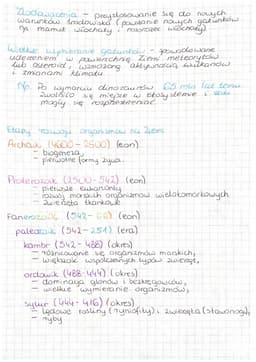 - przystosowanie się do nowych
warunków środowiska (powstanie nowych gatunków
np mamut włochaty i nosorożec włochaty)
Wielkie wymieranie gatunków - spowodowane
uderzeniem w powierzchnię Ziemi meteorytów
lub asteroid, wzmożoną aktywnością wulkanów
i zmianami klimatu
Np. Po wymarciu dinozaurów 65 mln lat temu
zwolniło się miejsce w ekosystemie i ssaki
mogły się rozprzestrzeniać
Etapy rozwoju organizmów na Ziemi
Archaik (4600 - 2500) (eon)
- biogeneza,
- pierwotne formy życia.
Proterozoik (2500-542) (eon)
- pierwsze eukarionty
- rozwój morskich organizmów wielokomórkowych
- zwierzęta tkankowe
Fanerozoik (542 - ) (eon)
paleozoik (542 - 251) (era)
kambr (542 - 488) (okres)
- różnicowanie się organizmów morskich,
- większość współczesnych typów zwierząt,
ordowik (488-444) (okres)
- dominacja glonów i bezkręgowców,
- wielkie wymieranie organizmów,
sylur (444- 416) (okres)
- lądowe rośliny (ryniofity) i zwierzęta (stawonogi),
- ryby